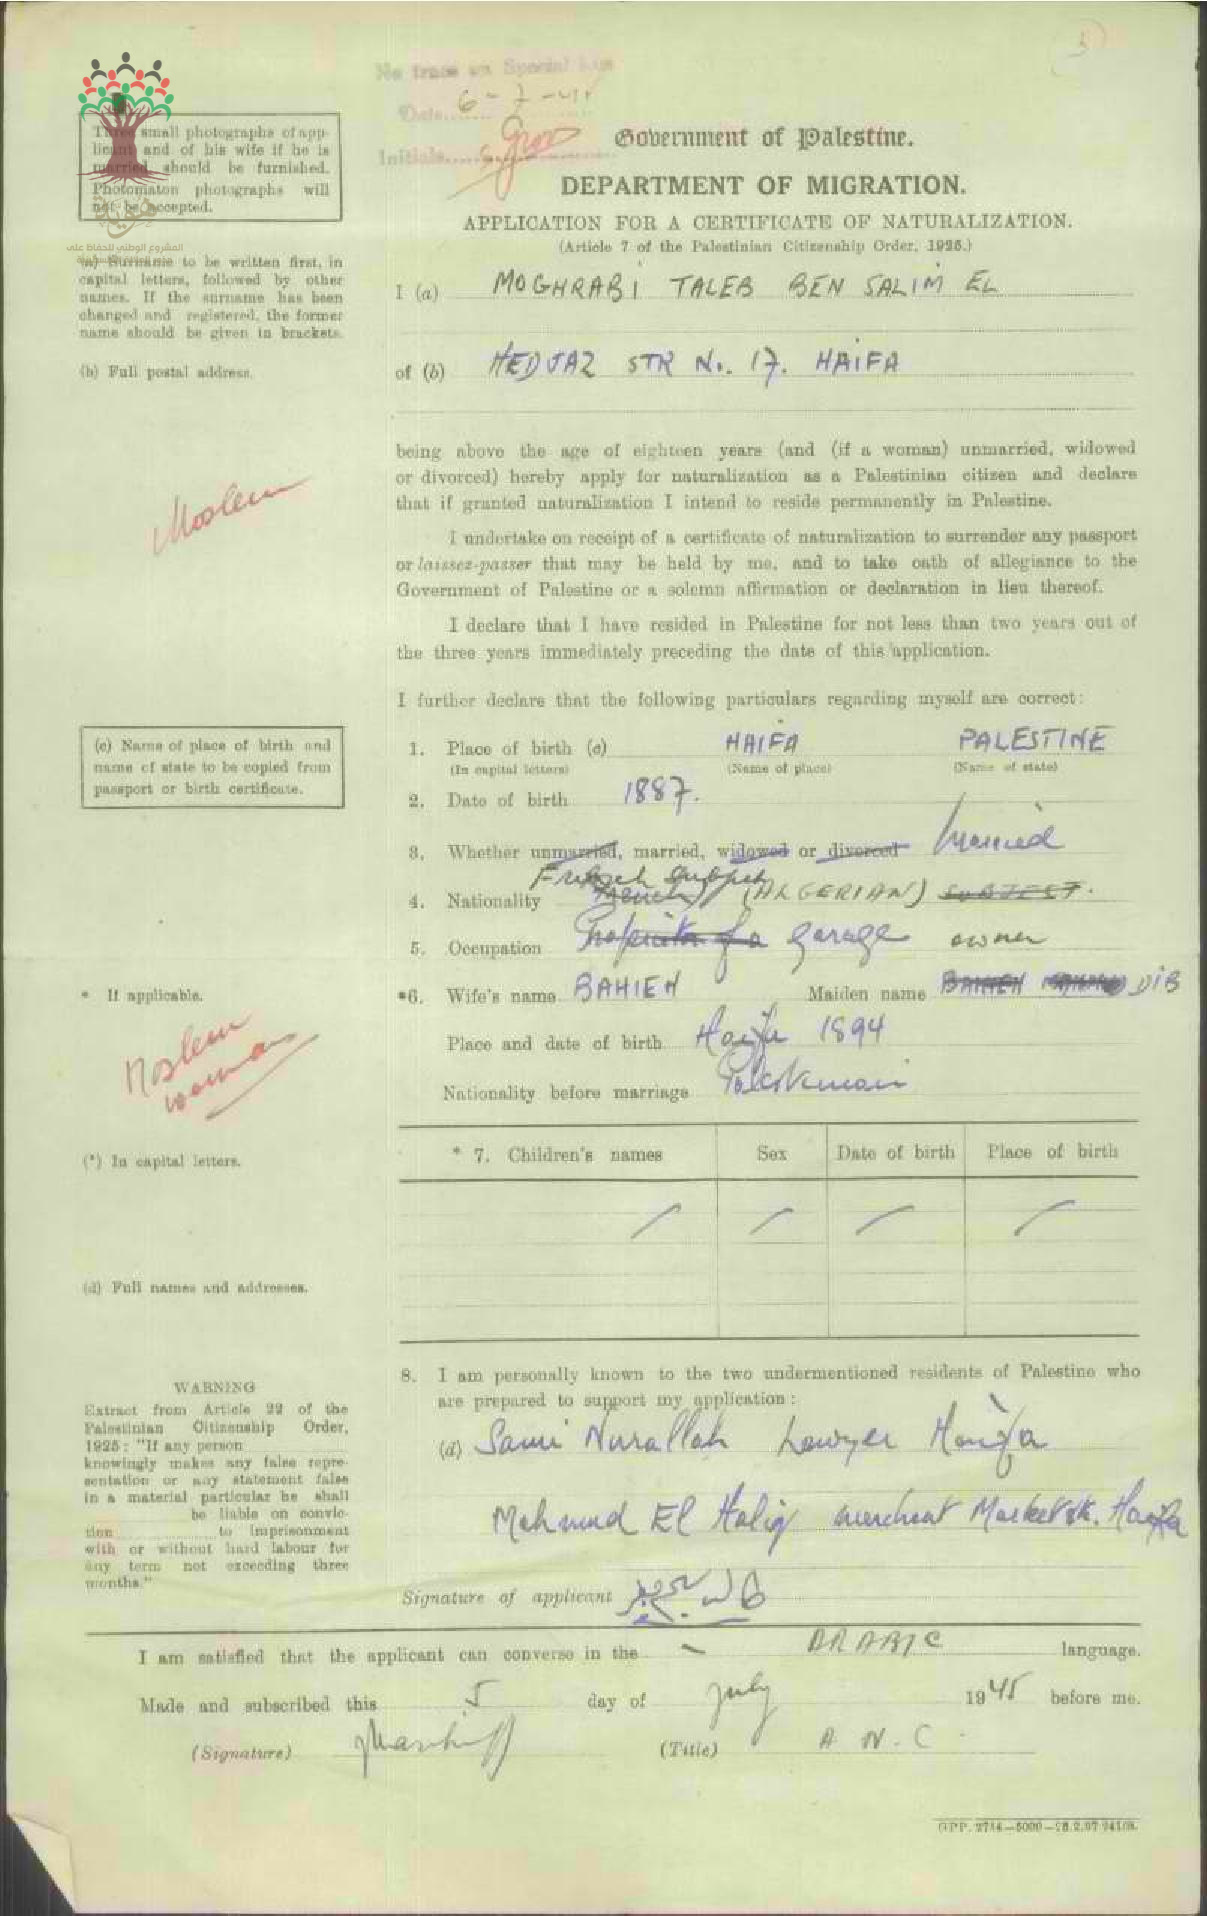 No trace on Special List
Date 6-7-45
Initials
Government of Palestine.
DEPARTMENT OF MIGRATION.
APPLICATION FOR A CERTIFICATE OF NATURALIZATION.
(Article 7 of the Palestinian Citizenship Order, 1925.)
Three small photographs of app-
licant and of his wife if he is
married should be furnished.
Photomaton photographs will
not be accepted.
هوية
المشروع الوطني للحفاظ على
(a) Surname to be written first, in
capital letters, followed by other
names. If the surname has been
changed and registered, the former
name should be given in brackets.
I (a) MOGHRABI TALEB BEN SALIM EL
(b) Full postal address.
of (b) HEDJAZ STR No. 17. HAIFA
being above the age of eighteen years (and (if a woman) unmarried, widowed
or divorced) hereby apply for naturalization as a Palestinian citizen and declare
that if granted naturalization I intend to reside permanently in Palestine.
Moslem
I undertake on receipt of a certificate of naturalization to surrender any passport
or laissez-passer that may be held by me, and to take oath of allegiance to the
Government of Palestine or a solemn affirmation or declaration in lieu thereof.
I declare that I have resided in Palestine for not less than two years out of
the three years immediately preceding the date of this application.
I further declare that the following particulars regarding myself are correct:
(c) Name of place of birth and
name of state to be copied from
passport or birth certificate.
1. Place of birth (c) HAIFA PALESTINE
(In capital letters) (Name of place) (Name of state)
2. Date of birth 1887.
3. Whether unmarried, married, widowed or divorced Married
French subject
4. Nationality French (ALGERIAN) SUBJECT.
5. Occupation Proprietor of a garage owner
* If applicable.
*6. Wife's name BAHIEH Maiden name BAHIEH DIB
Place and date of birth Haifa 1894
Nationality before marriage Palestinian
Moslem
woman
(*) In capital letters.
* 7. Children's names Sex Date of birth Place of birth
(d) Full names and addresses.
8. I am personally known to the two undermentioned residents of Palestine who
are prepared to support my application:
(d) Sami Nurallah Lawyer Haifa
Mahmud El Haliq merchant Market str. Haifa
WARNING
Extract from Article 22 of the
Palestinian Citizenship Order,
1925: "If any person
knowingly makes any false repre-
sentation or any statement false
in a material particular he shall
be liable on convic-
tion to imprisonment
with or without hard labour for
any term not exceeding three
months."
Signature of applicant
I am satisfied that the applicant can converse in the ARABIC language.
Made and subscribed this 5 day of July 1945 before me.
(Signature) (Title) A. N. C.